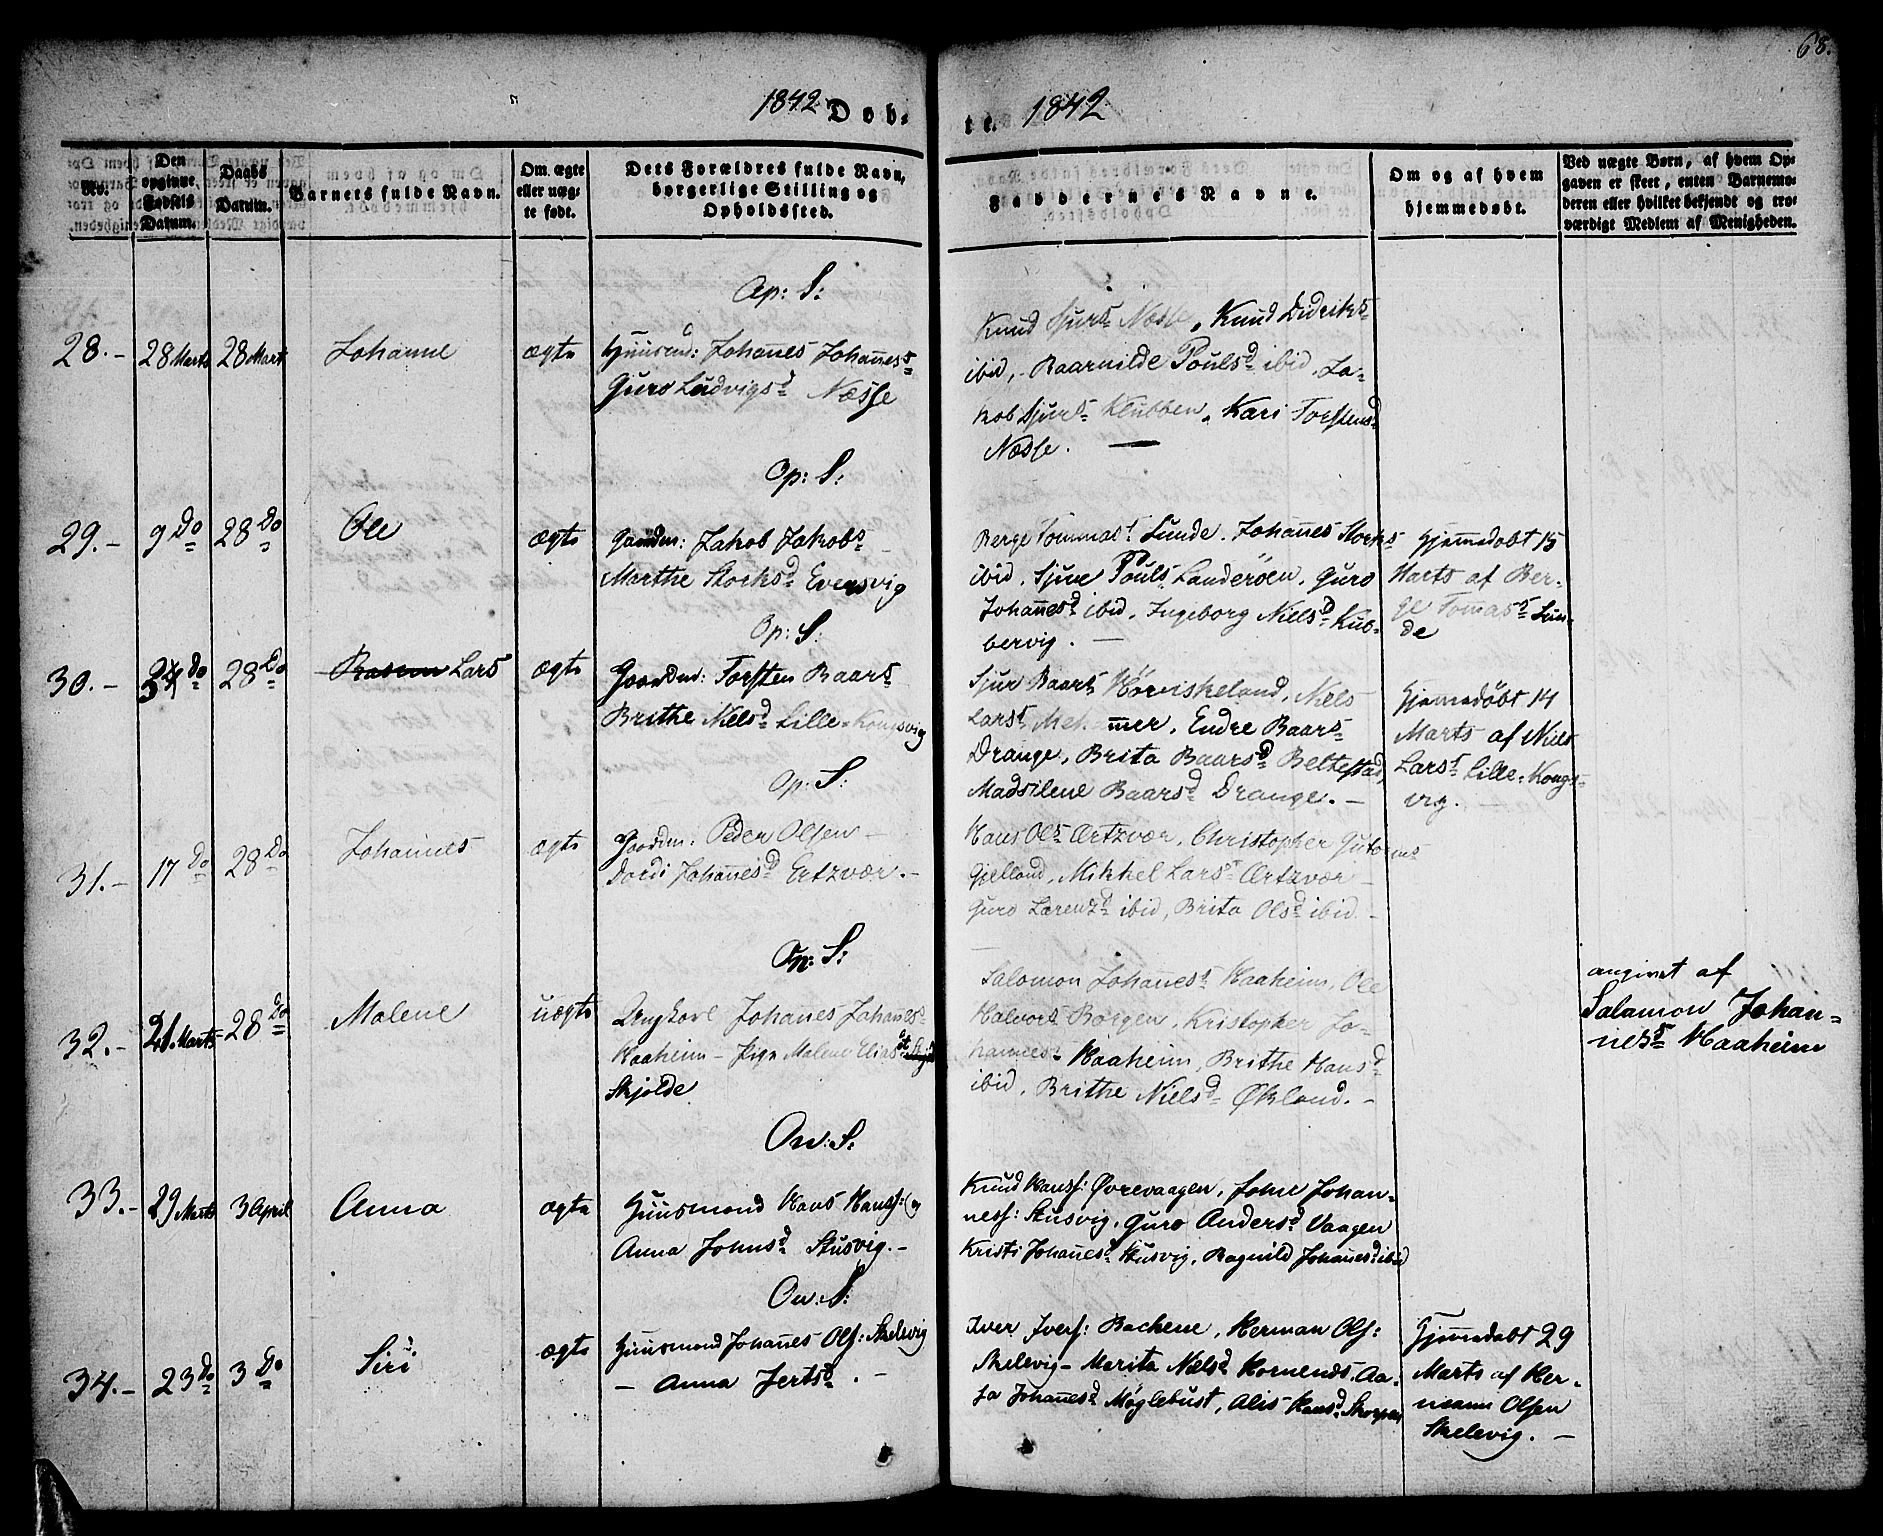 68.
1842 Døb-
te. 1842
No.
Den opgivne Fødsels Datum.
Daabs Datum.
Barnets fulde Navn.
Om ægte eller uæg- te født.
Dets Forældres fulde Navn, borgerlige Stilling og Opholdssted.
Faddernes Navne.
Om og af hvem hjemmedøbt.
Ved uægte Børn, af hvem Op- gaven er skeet, enten Barnemo- deren eller hvilket bekjendt og tro- værdigt Medlem af Menigheden.
Op: S:
28.- 28 Marts 28 Mart Johanne ægte Huusmd: Johanes Johaness:
Guro Ludvigsd Næsse
Knud Sjurs Næsse, Knud Didriks
ibid, Baarnilde Poulsd ibid, Ja-
kob Sjurs Klubben, Kari Torstensd
Næsse. —
Op: S:
29.- 9 Do 28 Do Ole ægte Gaardm: Jakob Jakobs
Marthe Storksd Evensvig
Berge Tommas Lunde, Johanes Storks
ibid, Sjure Pouls Landerøen, Guro
Johannesd ibid, Ingeborg Nielsd Kub-
bervig. —
Gjemmedøbt 15
Marts af Ber-
ge Tomas Lun-
de
Op: S:
30.- Do 28 Do Lars ægte Gaardm: Torsten Baars
Brithe Nielsd Lille-Kongsvig
Sjur Baars Hørviskeland, Niels
Lars Mehammer, Endre Baars
Drange, Brita Baarsd Beltestad,
Madsilene Baarsd Drange. -
Gjemmedøbt 14
Marts af Niels
Lars Lille-Kongs-
vig.
Op: S:
31.- 17 Do 28 Do Johannes ægte Gaardm: Peder Olsen -
Dordi Johannesd Ertzvær. -
Hans Ols Ærtzvær, Christopher Gutorms
Gjelland, Mikkel Lars Ærtzvær -
Guro Larenzd ibid, Brita Olsd ibid. -
Op: S:
32.- 21 Marts 28 Do Malene uægte Ungkarl Johanes Johanes
Haaheim - Pige Malene Eliasd
Skjolde
Salomon Johanes Haaheim, Ole
Halvors Børgen, Kristopher Jo-
hannes Haaheim, Brithe Hansd
ibid, Brithe Nielsd Økland. -
angivet af
Salamon Johan-
ness Haaheim
Ow: S:
33.- 29 Marts 3 April Anna ægte Huusmand Hans Hanss: og
Anna Johnsd Stusvig. -
Knud Hanss: Øvrevaagen, John Johan-
ness: Stusvig, Guro Andersd Vaagen
Kristi Johanesd Stusvig, Ragnild Johanesd ibid
Ow: S:
34.- 23 Do 3 Do Siri ægte Huusmand Johanes Ols: Skelevig
— Anna Jertsd. -
Iver Ivers: Backene, Herman Ols:
Skelevig - Marita Nielsd Homends, Aa-
sa Johanesd Møglebust, Alis Hansd Skorpen
Gjemmedøbt 29
Marts af Her-
mann Olsen
Skelevig. -